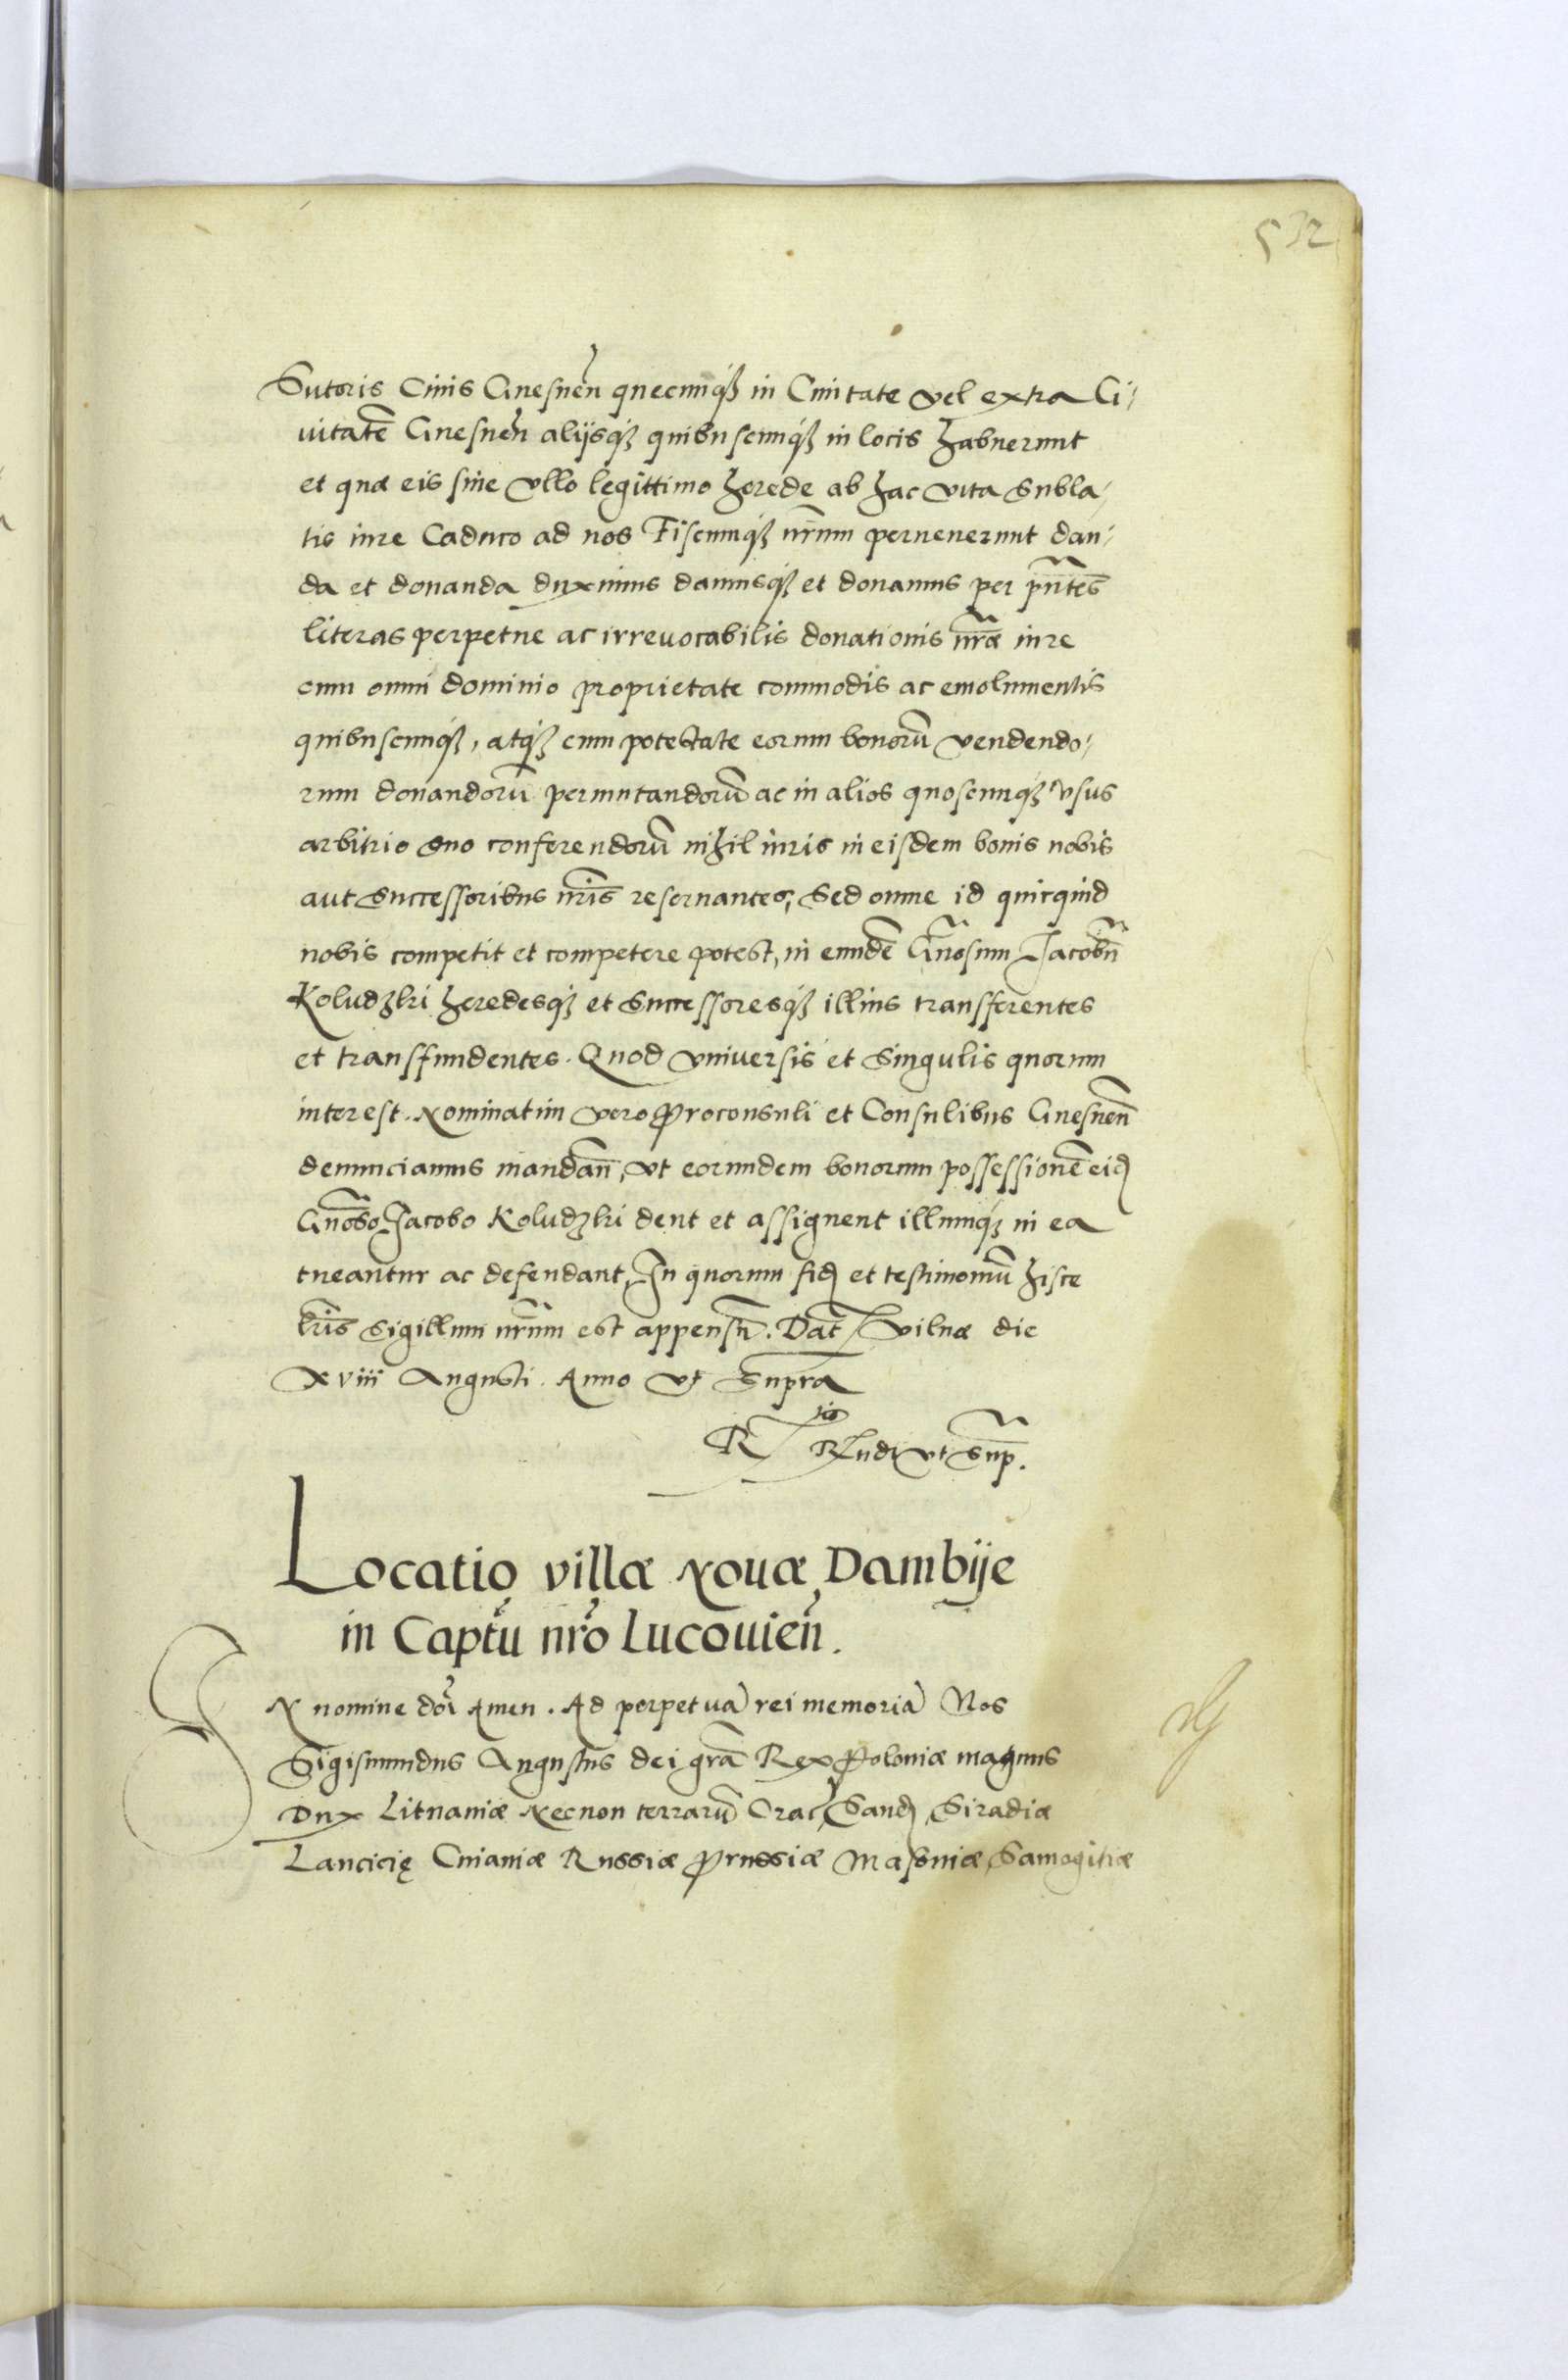 532
Sutoris Civis Gnesneñ quecunqȝ in Civitate vel extra Ci-
vitatē Gnesneñ alijsqȝ quibuscunqȝ in locis habuerunt
et quæ eis sine vllo legittimo herede ab hac vita subla-
tis iure Caduco ad nos Fiscumqȝ nr̃um pervenerunt dan-
da et donanda duximus damusqȝ et donamus per pñtes
literas perpetue ac irrevocabilis donationis nr̃æ iure
cum omni dominio proprietate commodis ac emolumentis
quibuscunqȝ, atqȝ cum potestate eorum bonorũ vendendo-
rum donandorũ permutandorũ ac in alios quoscunqȝ vsus
arbitrio suo conferendorũ nihil iuris in eisdem bonis nobis
aut Successoribus nr̃is reservantes, Sed omne id quicquid
nobis competit et competere potest, in eundē Gñosum Jacobũ
Koludzki heredesqȝ et Successoresqȝ illius transferentes
et transfundentes. Quod vniversis et Singulis quorum
interest. Nominatim vero Proconsuli et Consulibus Gnesneñ
denunciamus mandañ, vt eorundem bonorum possessionē eid
Gñoso Jacobo Koludzki dent et assignent illumqȝ in ea
tueantur ac defendant, In quorum fid et testimoniũ hisce
lr̃is Sigillum nr̃um est appensũ. Dat Vilnæ die
xviii Augusti. Anno vt Supra
R vt Sup.
Locatio villæ Novæ Dambije
in Captũ nrõ Lucovieñ.
IN nomine doĩ Amen. Ad perpetuã rei memoriã Nos
Sigismundus Augustus dei grã Rex Poloniæ magnus
Dux Lituaniæ Necnon terrarũ Crac, Sand, Siradiæ
Lancicię Cuiaviæ Russiæ Prussiæ Masoviæ Samogitiæ